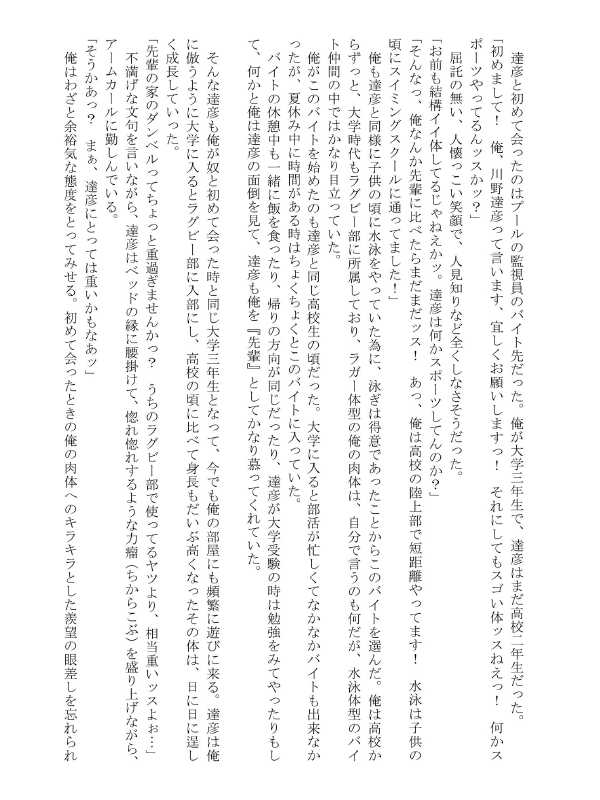 達彦と初めて会ったのはプールの監視員のバイト先だった。俺が大学三年生で、達彦はまだ高校二年生だった。
「初めまして！　俺、川野達彦って言います、宜しくお願いしますっ！　それにしてもスゴい体ッスねえっ！　何かス
ポーツやってるんッスかッ？」
　屈託の無い、人懐っこい笑顔で、人見知りなど全くしなさそうだった。
「お前も結構イイ体してるじゃねえかッ。達彦は何かスポーツしてんのか？」
「そんなっ、俺なんか先輩に比べたらまだまだッス！　あっ、俺は高校の陸上部で短距離やってます！　水泳は子供の
頃にスイミングスクールに通ってました！」
　俺も達彦と同様に子供の頃に水泳をやっていた為に、泳ぎは得意であったことからこのバイトを選んだ。俺は高校か
らずっと、大学時代もラグビー部に所属しており、ラガー体型の俺の肉体は、自分で言うのも何だが、水泳体型のバイ
ト仲間の中ではかなり目立っていた。
　俺がこのバイトを始めたのも達彦と同じ高校生の頃だった。大学に入ると部活が忙しくてなかなかバイトも出来なか
ったが、夏休み中に時間がある時はちょくちょくとこのバイトに入っていた。
　バイトの休憩中も一緒に飯を食ったり、帰りの方向が同じだったり、達彦が大学受験の時は勉強をみてやったりもし
て、何かと俺は達彦の面倒を見て、達彦も俺を『先輩』としてかなり慕ってくれていた。
　そんな達彦も俺が奴と初めて会った時と同じ大学三年生となって、今でも俺の部屋にも頻繁に遊びに来る。達彦は俺
に倣うように大学に入るとラグビー部に入部にし、高校の頃に比べて身長もだいぶ高くなったその体は、日に日に逞し
く成長していった。
「先輩の家のダンベルってちょっと重過ぎませんかっ？　うちのラグビー部で使ってるヤツより、相当重いッスよぉ…」
　不満げな文句を言いながら、達彦はベッドの縁に腰掛けて、惚れ惚れするような力瘤（ちからこぶ）を盛り上げながら、
アームカールに勤しんでいる。
「そうかあっ？　まぁ、達彦にとっては重いかもなあッ」
　俺はわざと余裕気な態度をとってみせる。初めて会ったときの俺の肉体へのキラキラとした羨望の眼差しを忘れられ